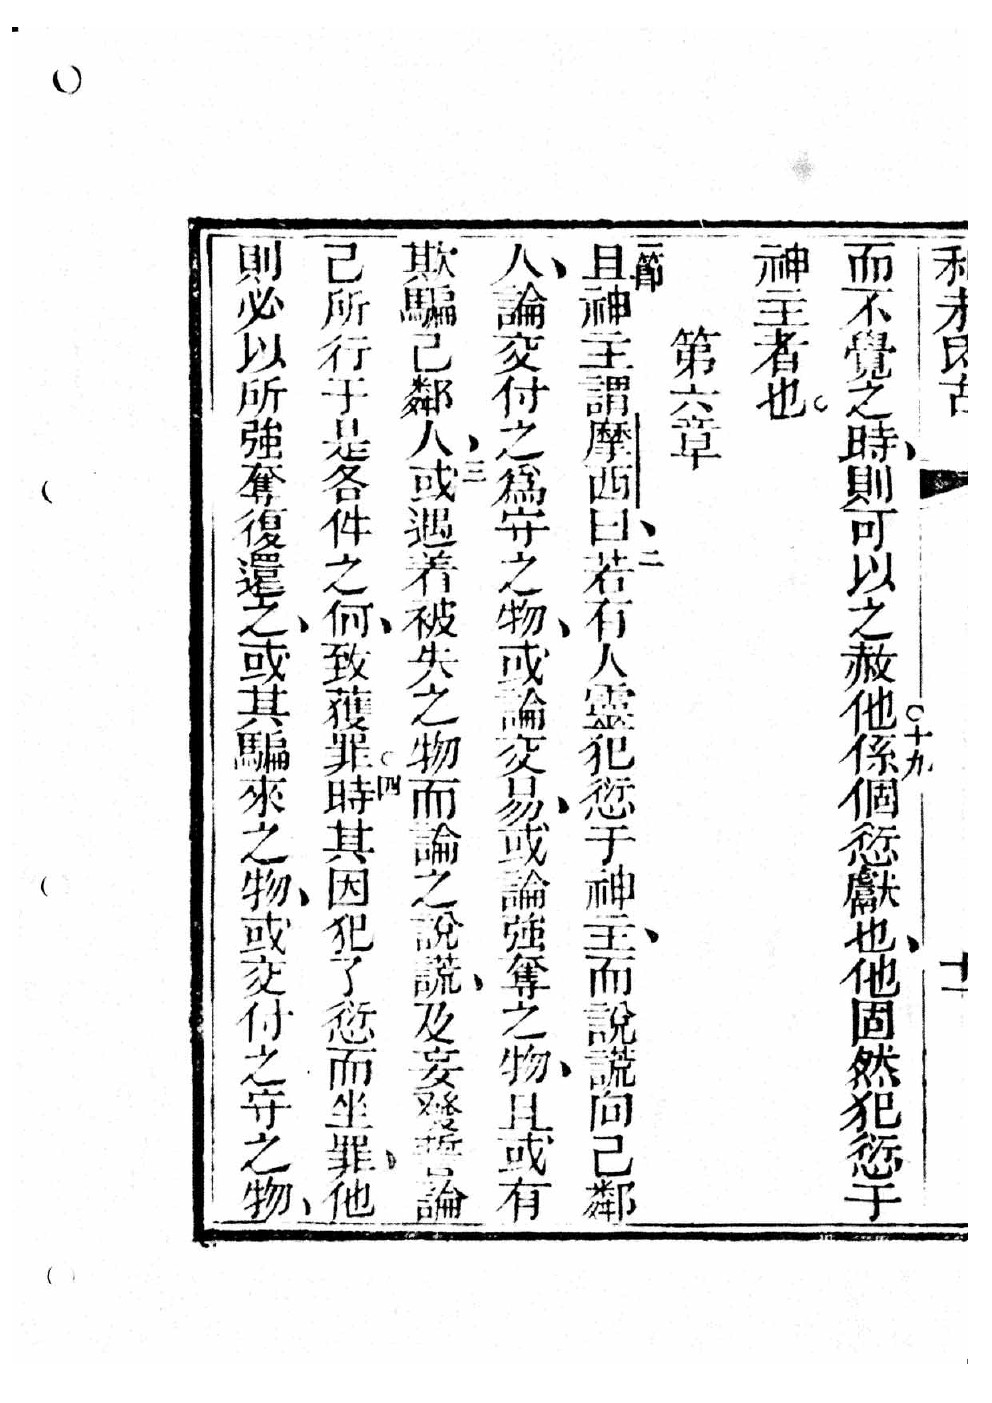 利未氏古
十一
而不覺之時、則可以之赦他。十九係個愆獻也、他固然犯愆于
神主者也。
第六章
一節且神主謂摩西曰、二若有人靈犯愆于神主、而說謊向己鄰
人、論交付之爲守之物、或論交易、或論強奪之物、且或有
欺騙己鄰人、三或遇着被失之物而論之說謊、及妄發誓論
己所行于是各件之何、致獲罪。四時其因犯了愆而坐罪、他
則必以所強奪復還之、或其騙來之物、或交付之守之物、